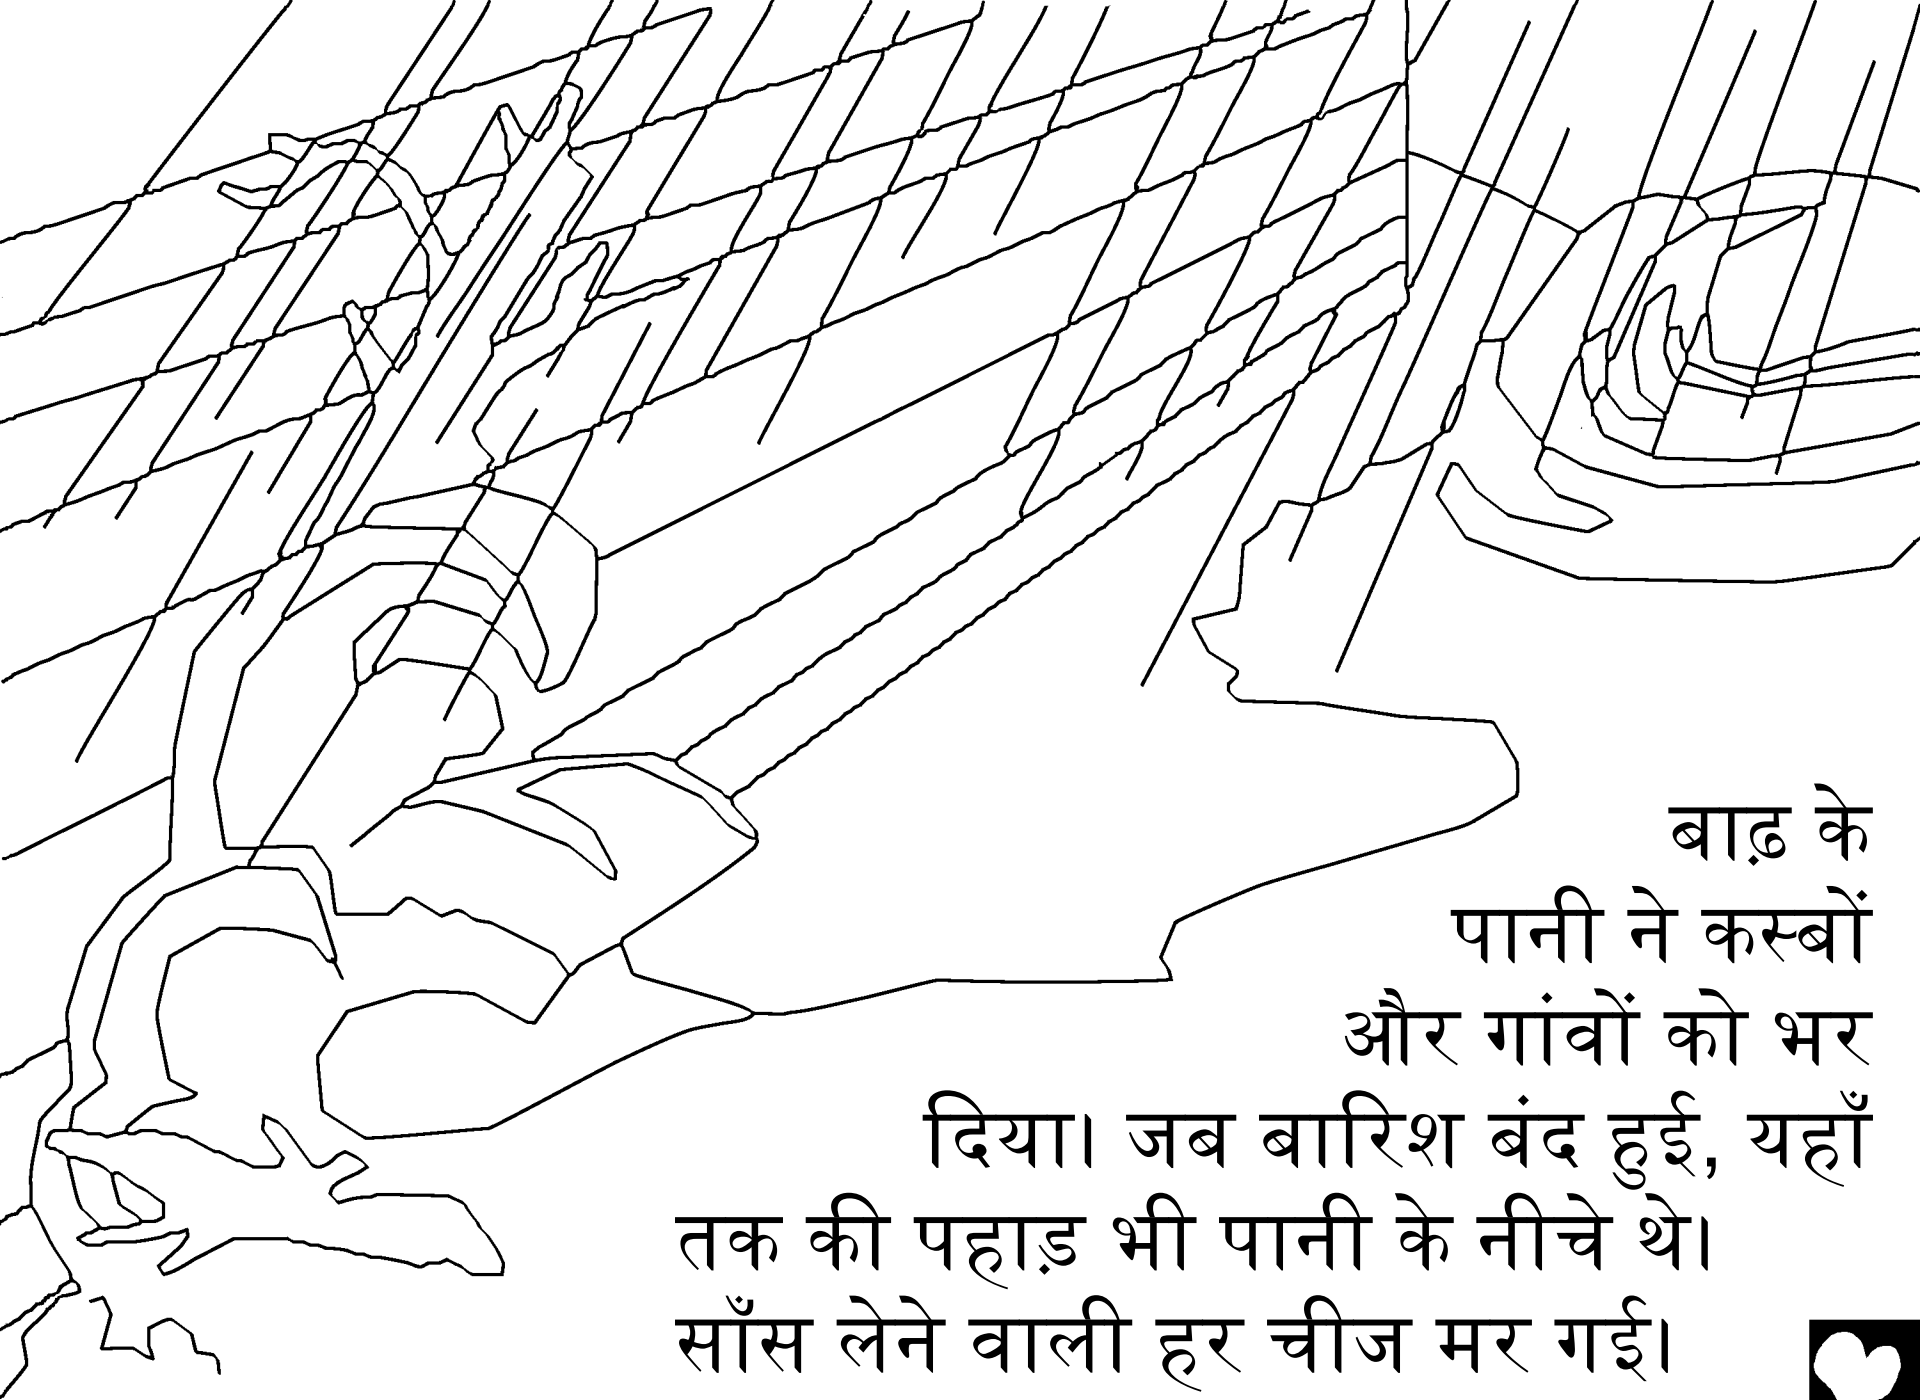 बाढ़ के
पानी ने कस्बों
और गांवों को भर
दिया। जब बारिश बंद हुई, यहाँ
तक की पहाड़ भी पानी के नीचे थे।
साँस लेने वाली हर चीज मर गई।